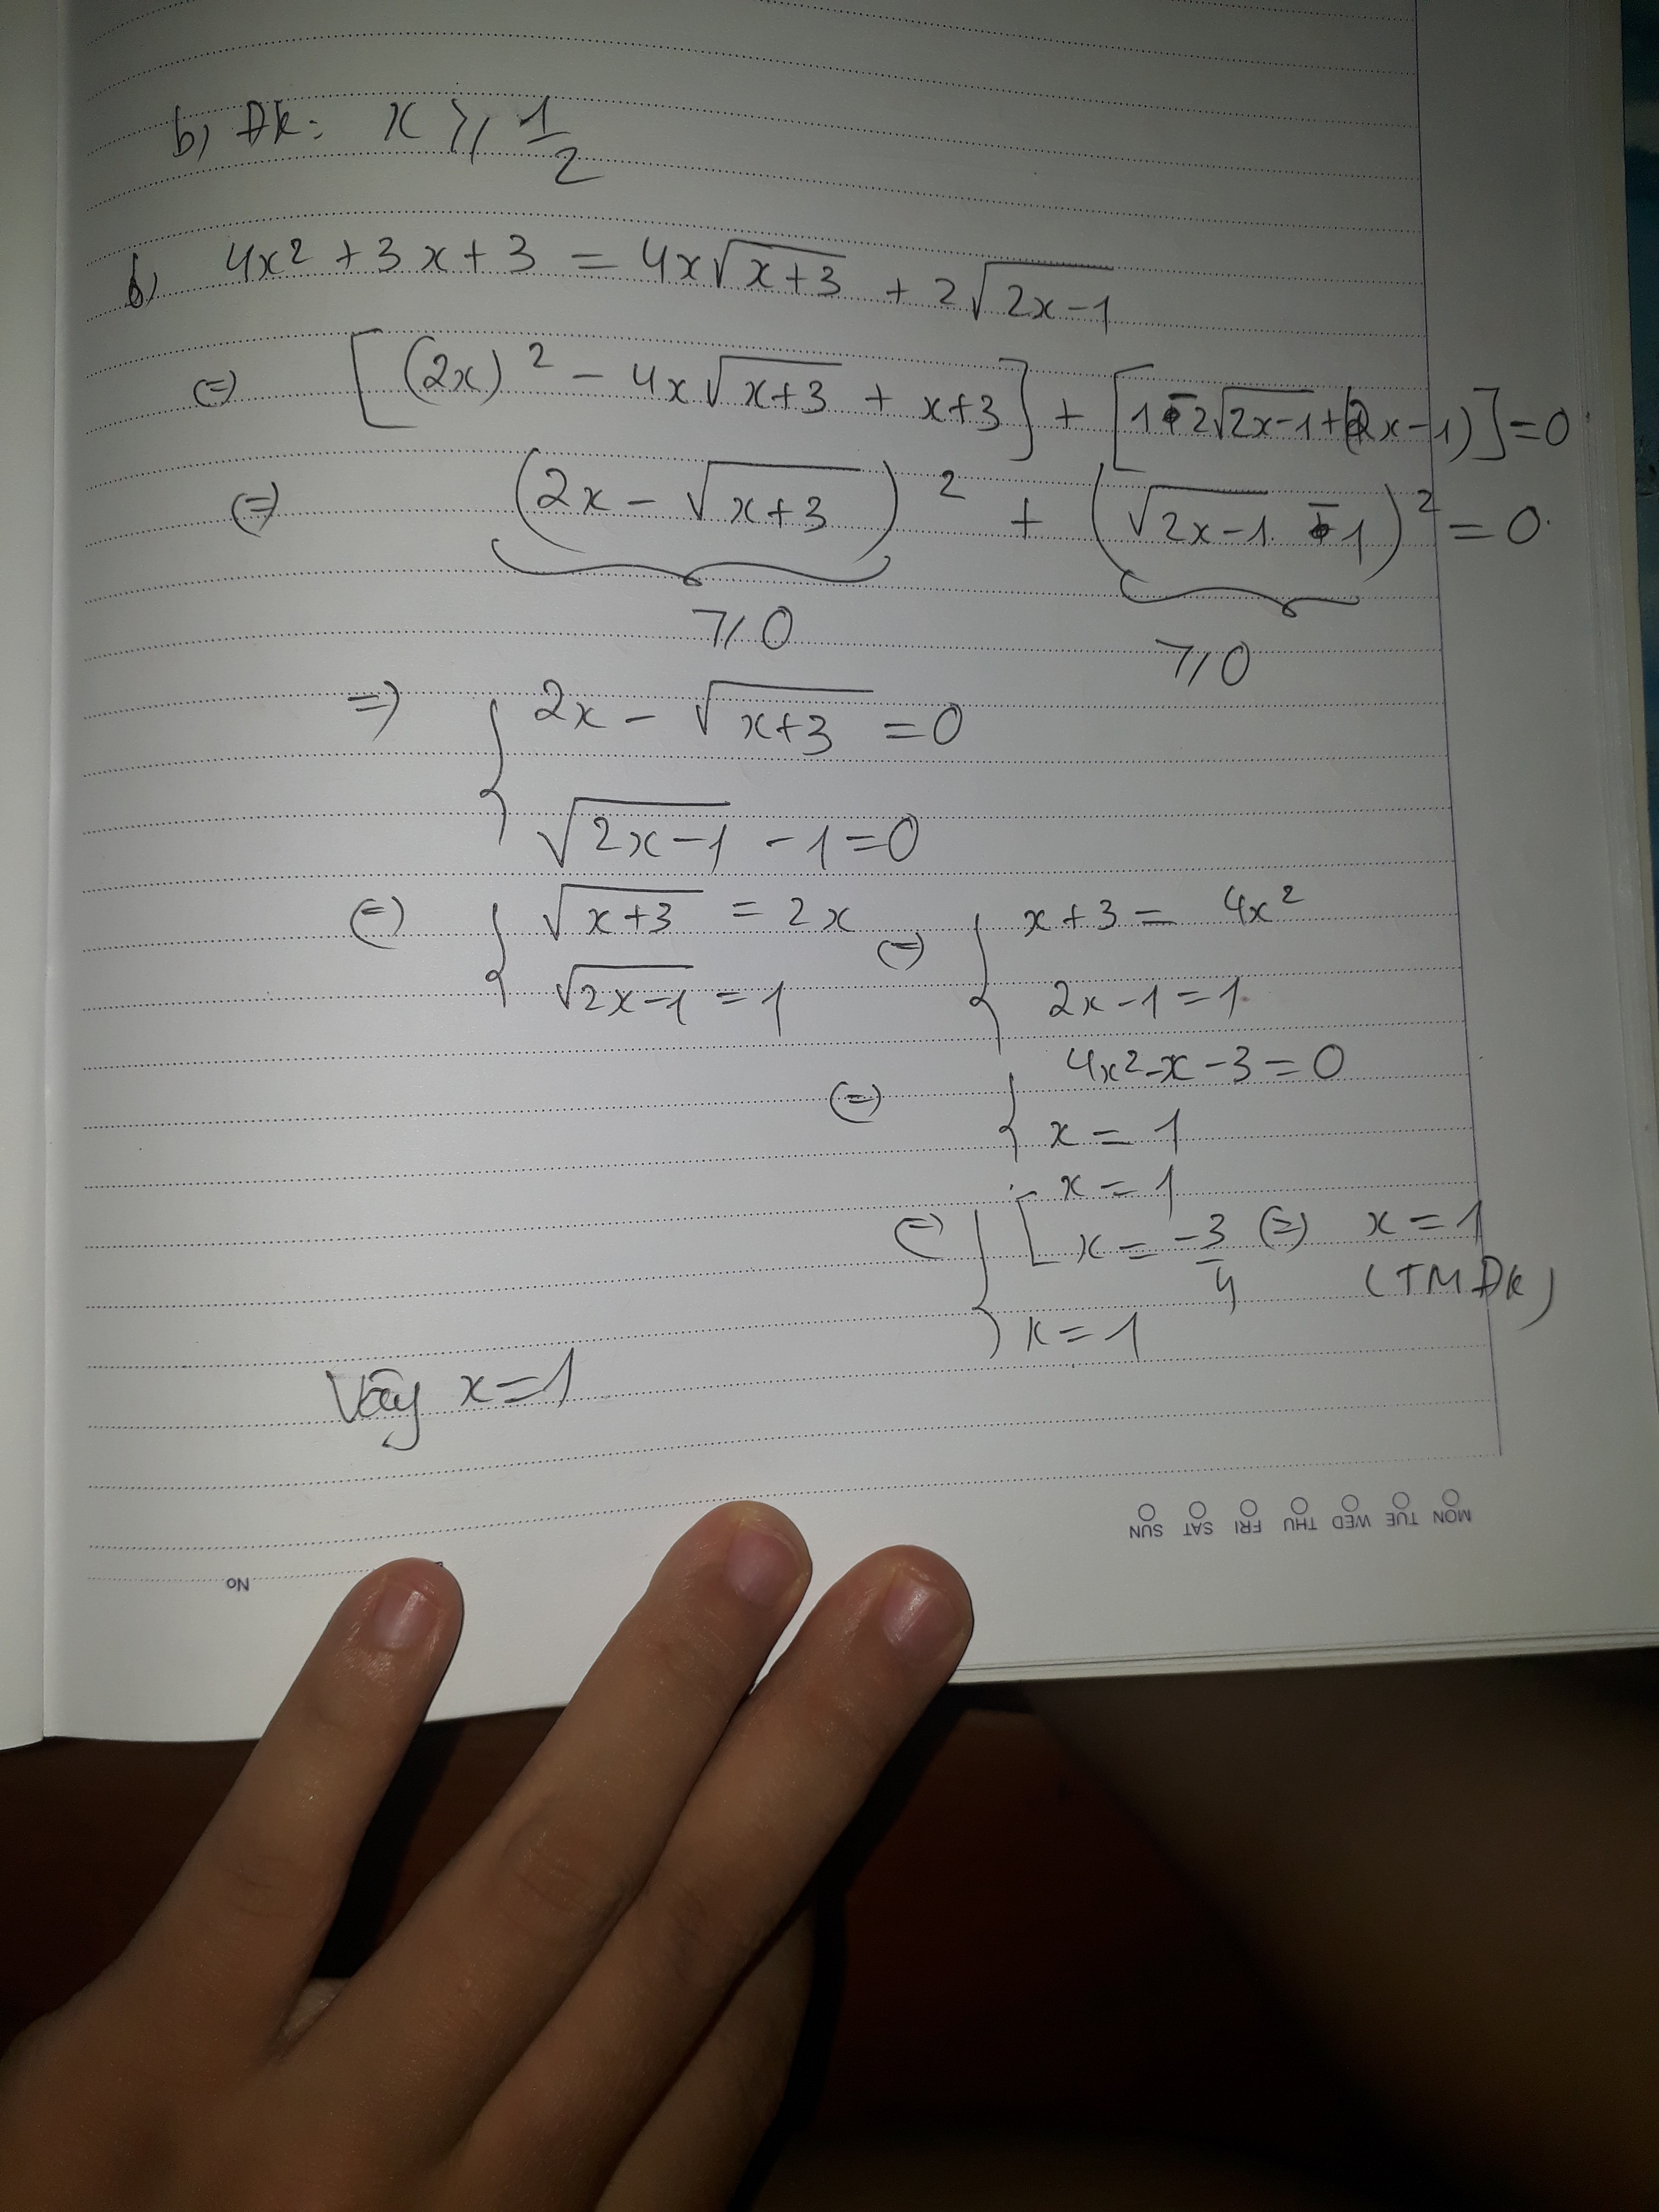 b) ĐK: x ⩾ 1/2
b) 4x² + 3x + 3 = 4x√(x+3) + 2√(2x-1)
(=) [(2x)² - 4x√(x+3) + x+3] + [1 - 2√(2x-1) + (2x-1)] = 0
(=) (2x - √(x+3))² + (√(2x-1) - 1)² = 0
⩾ 0 ⩾ 0
=) { 2x - √(x+3) = 0
√(2x-1) - 1 = 0
(=) { √(x+3) = 2x (=) { x+3 = 4x²
√(2x-1) = 1 2x-1 = 1
(=) { 4x² - x - 3 = 0
x = 1
(=) { [ x = 1
x = -3/4 (=) x = 1
(TMĐK)
x = 1
Vậy x = 1
MON TUE WED THU FRI SAT SUN
No